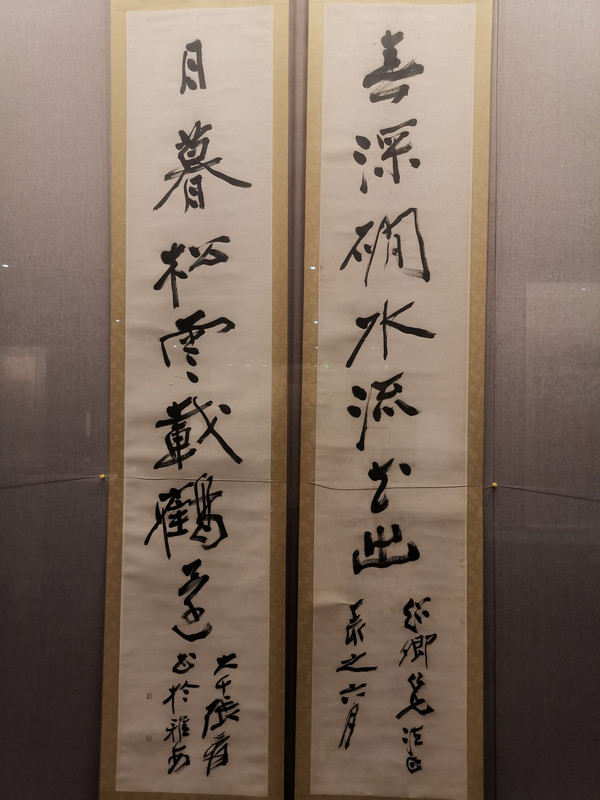 春深磵水流花出
卿仁兄法正
之六月
日暮松雲載鶴還
大千張爰
書於雅安